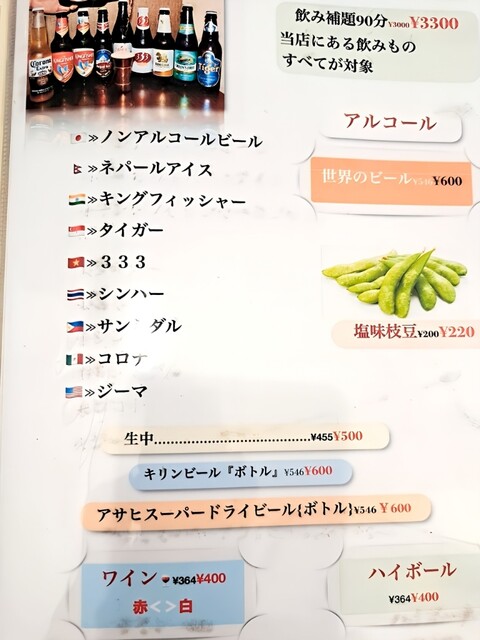 飲み補題90分¥3000 ¥3300
当店にある飲みもの
すべてが対象
アルコール
世界のビール¥546¥600
≫ノンアルコールビール
≫ネパールアイス
≫キングフィッシャー
≫タイガー
≫３３３
≫シンハー
≫サン ダル
≫コロナ
≫ジーマ
塩味枝豆¥200¥220
生中......................................¥455¥500
キリンビール『ボトル』¥546¥600
アサヒスーパードライビール{ボトル}¥546 ¥600
ワイン ¥364¥400
赤<>白
ハイボール
¥364¥400